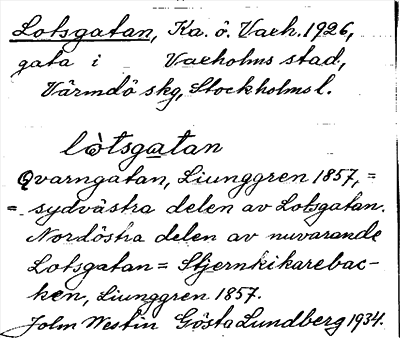 Lotsgatan, Ka. ö. Vaxh. 1926,
gata i Vaxholms stad,
Värmdö skg, Stockholms l.
lòtsgatan
Qvarngatan, Ljunggren 1857, =
= sydvästra delen av Lotsgatan.
Nordöstra delen av nuvarande
Lotsgatan = Stjernkikarebac-
ken, Ljunggren 1857.
John Westin Gösta Lundberg 1934.